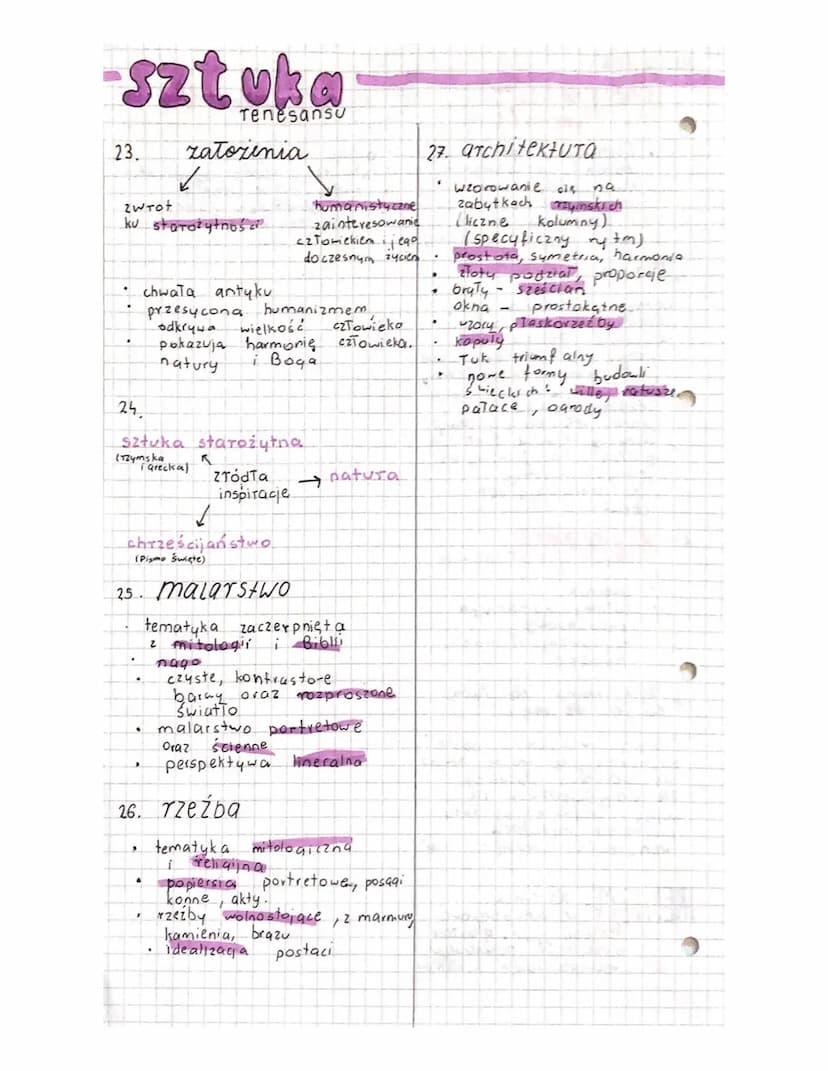 sztuka
renesansu
23. założenia
zwrot
ku starożytności
humanistyczne
zainteresowanie
człowiekiem i jego
doczesnym życiem
• chwała antyku
• przesycona humanizmem,
odkrywa wielkość człowieka
• pokazują harmonię człowieka,
natury i Boga
24.
sztuka starożytna
(rzymska
i grecka)
źródła
inspiracje
→ natura
chrześcijaństwo
(Pismo Święte)
25. malarstwo
• tematyka zaczerpnięta
z mitologii i Biblii
• nago
• czyste, kontrastore
barwy oraz rozproszone
światło
• malarstwo portretowe
oraz ścienne
• perspektywa lineralna
26. rzeźba
• tematyka mitologiczna
i religijna
• popiersia portretowe, posągi
konne, akty.
• rzeźby wolnostojące, z marmuru,
kamienia, brązu
• idealizacja postaci
27. architektura
• wzorowanie się na
zabytkach rzymskich
(liczne kolumny)
(specyficzny rytm)
• prostota, symetria, harmonia
• złoty podział, proporcje
• bryły - sześcian
okna - prostokątne
• wzory, płaskorzeźby
• kopuły
• łuk triumfalny
• nowe formy budowli
świeckich: wille, ratusze,
pałace, ogrody